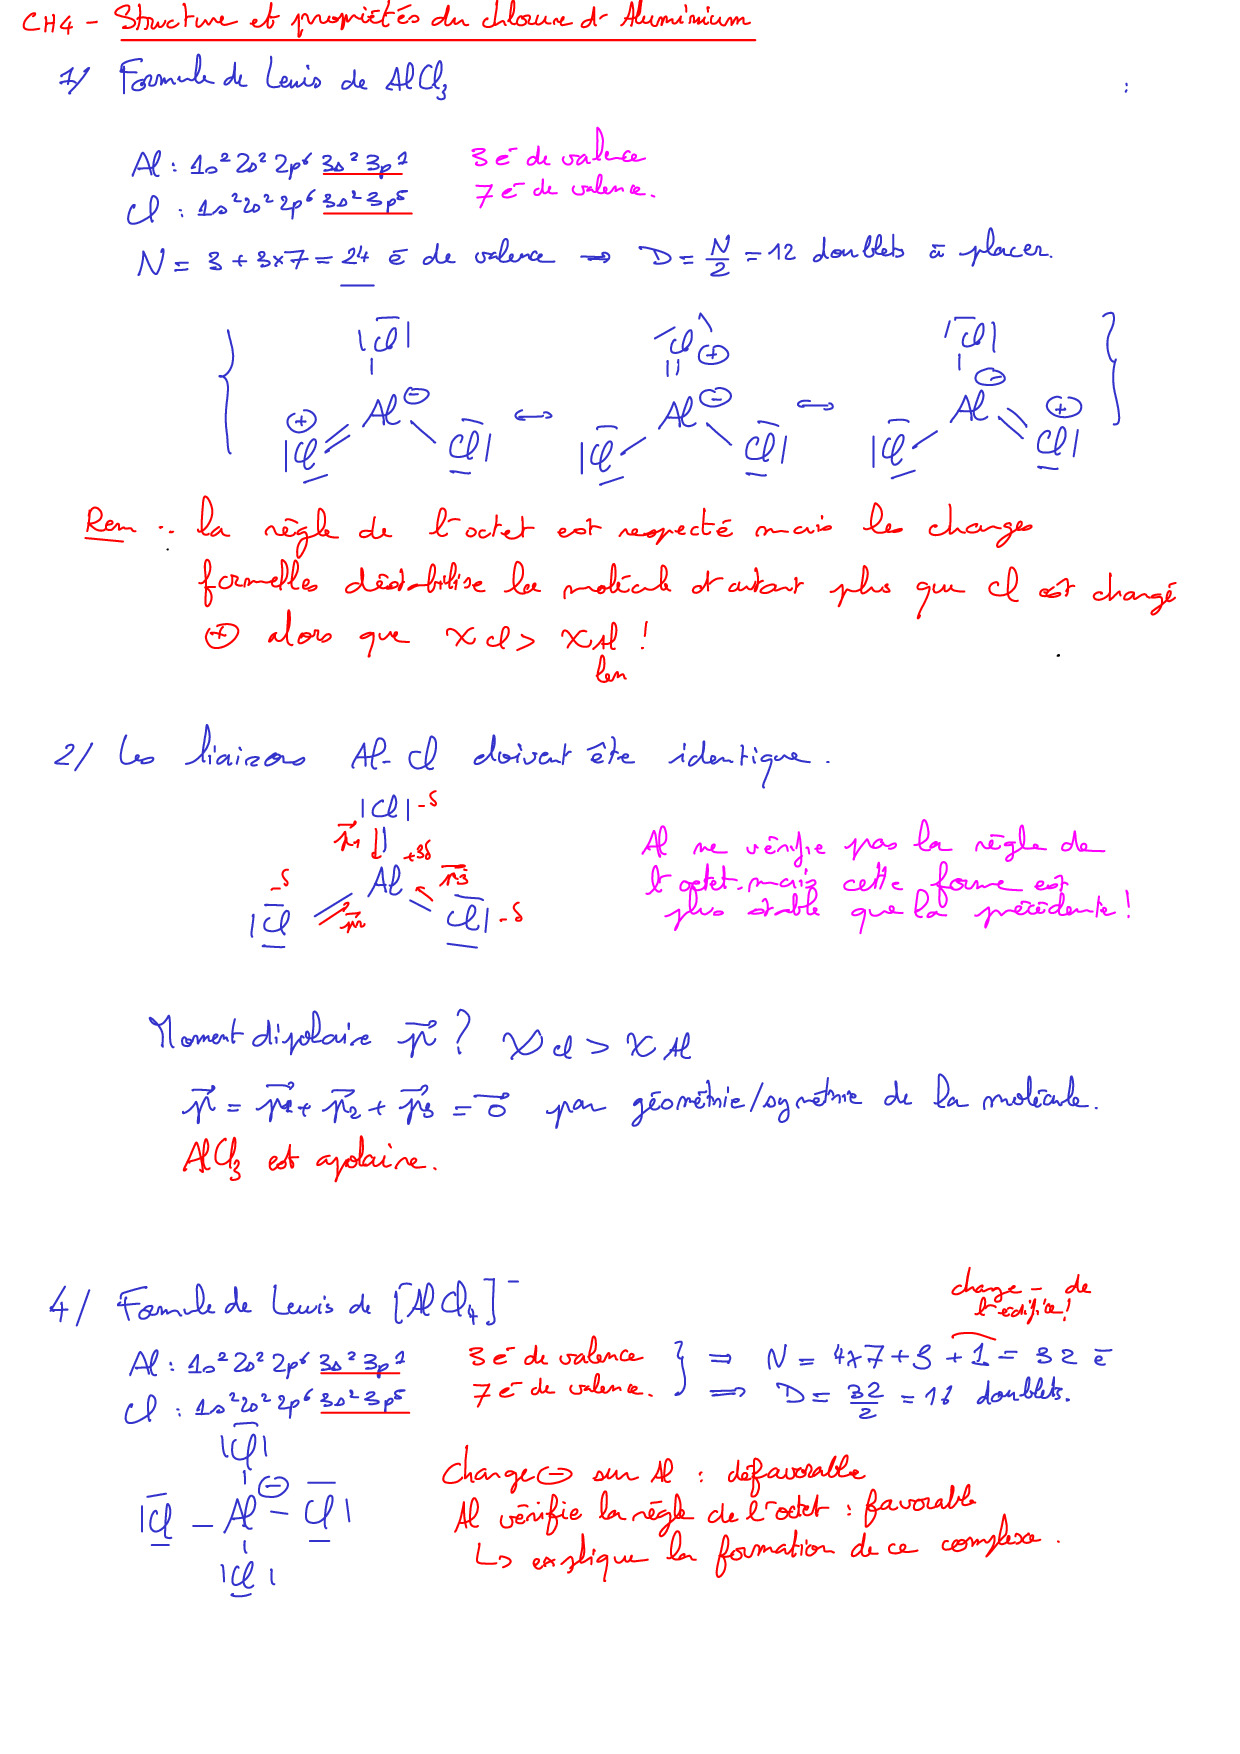 CH4 - Structure et propriétés du chlorure d'Aluminium
1/ Formule de Lewis de AlCl₃
Al : 1s² 2s² 2p⁶ 3s² 3p¹ 3 é de valence
Cl : 1s² 2s² 2p⁶ 3s² 3p⁵ 7 é de valence.
N = 3 + 3x7 = 24 é de valence ⇒ D = N/2 = 12 doublets à placer.
|Cl| Cl ⊕ |Cl|
⊕ Al ⊖ ↔ Al ⊖ ↔ Al ⊖ ⊕
|Cl Cl| |Cl Cl| |Cl Cl|
Rem : la règle de l'octet est respecté mais les charges
formelles déstabilise la molécule d'autant plus que Cl est chargé
⊕ alors que χ Cl > χ Al !
2/ Les liaisons Al-Cl doivent ête identique.
|Cl| -δ
p₁ +3δ
-δ Al p₃
|Cl p₂ Cl| -δ
Al ne vérifie pas la règle de
l'octet mais cette forme est
plus stable que la précédente !
Moment dipolaire p ? χ Cl > χ Al
p = p₁ + p₂ + p₃ = 0 par géométrie/symétrie de la molécule.
AlCl₃ est apolaire.
4/ Formule de Lewis de [AlCl₄]⁻
charge - de
l'édifice !
Al : 1s² 2s² 2p⁶ 3s² 3p¹ 3 é de valence } ⇒ N = 4x7 + 3 + 1 = 32 é
Cl : 1s² 2s² 2p⁶ 3s² 3p⁵ 7 é de valence. ⇒ D = 32/2 = 16 doublets.
|Cl|
|Cl - Al ⊖ - Cl|
|Cl|
Charge ⊖ sur Al : défavorable
Al vérifie la règle de l'octet : favorable
↳ explique la formation de ce complexe.